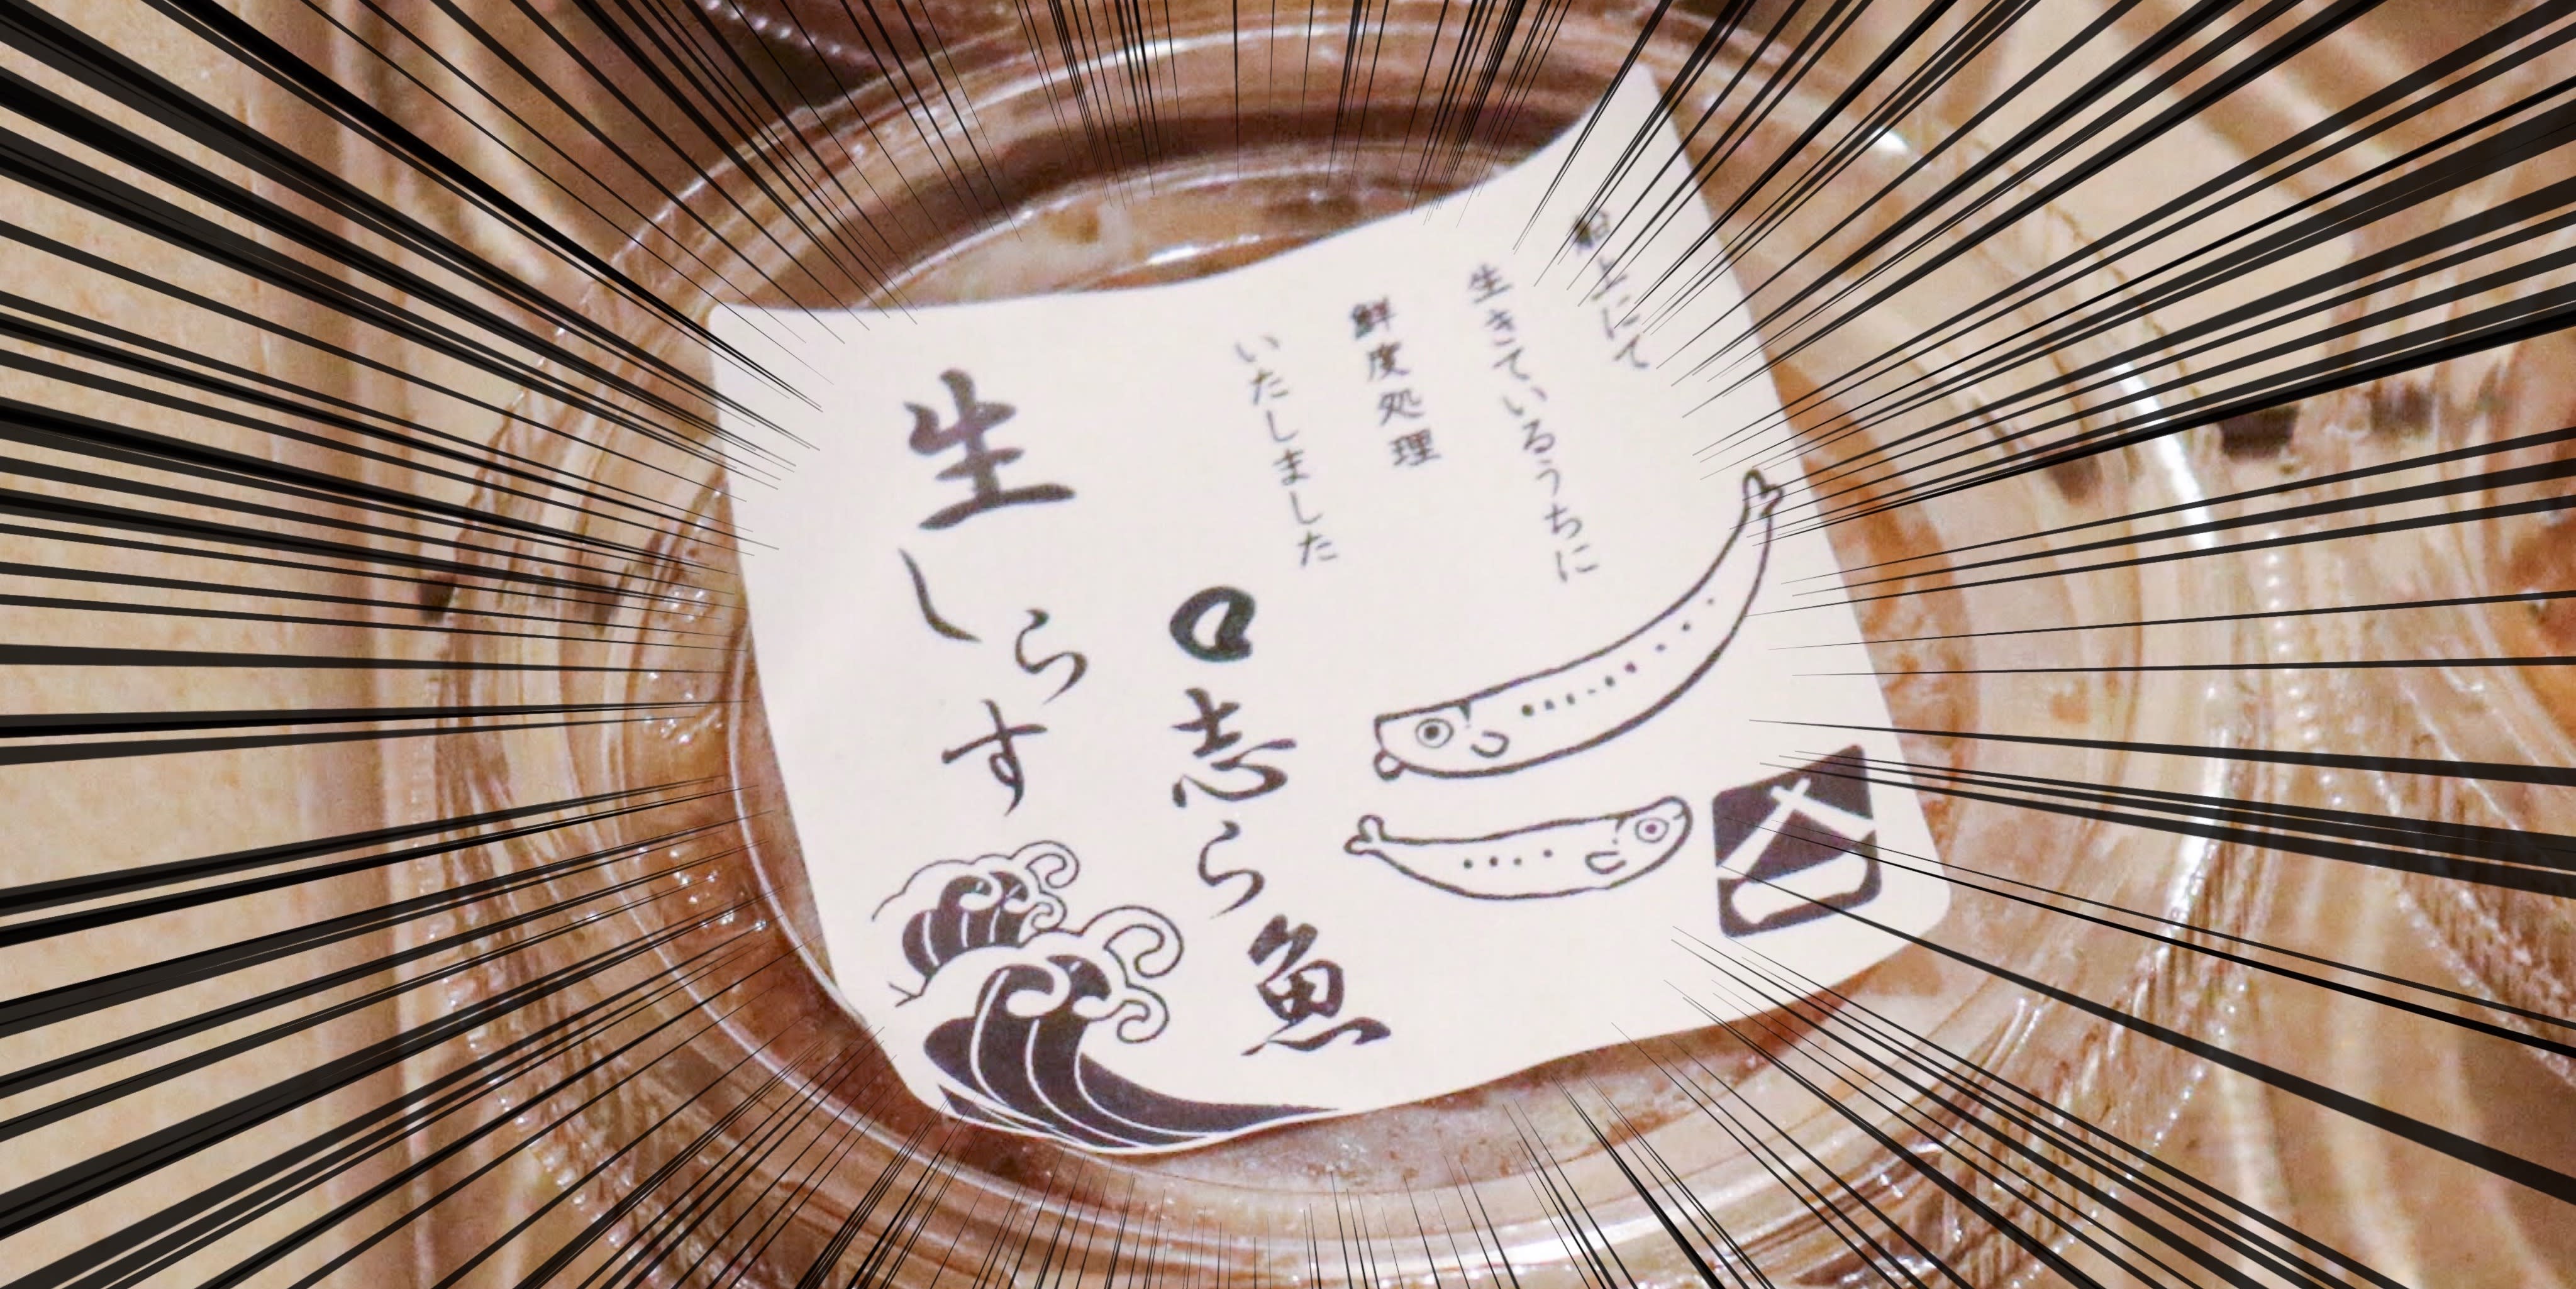 船上にて
生きているうちに
鮮度処理
いたしました
口志ら魚
生しらす